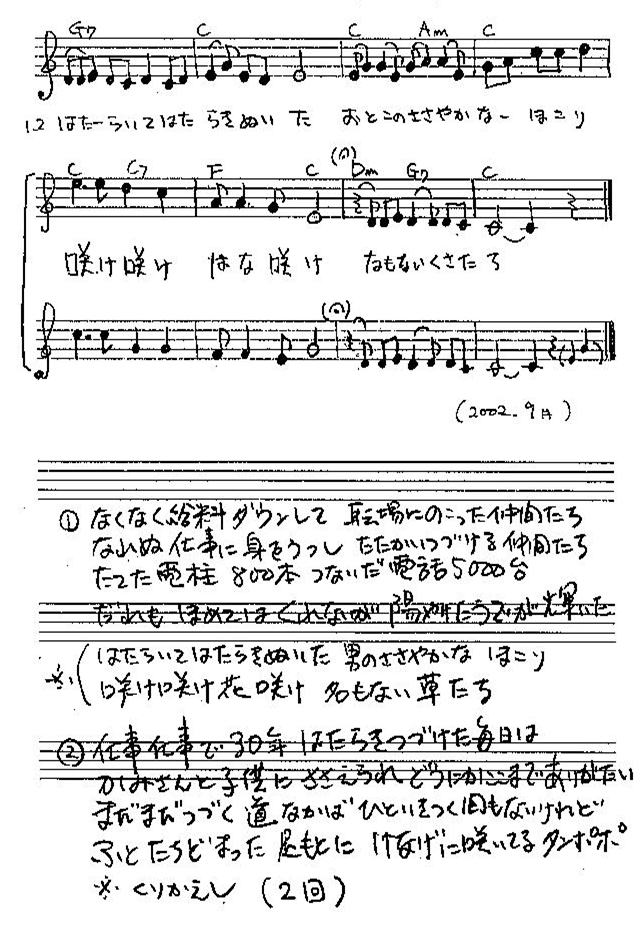 G7 C C Am C
1.2 はたーらいてはた らきぬい た おとこのささやかな ー ほこり
C G7 F C Dm G7 C
咲け咲け はな 咲 け なもないくさたち
(2002.9月)
① なくなく給料ダウンして 職場にのこった仲間たち
なれぬ仕事に身をうつし たたかいつづける仲間たち
たてた電柱 800本 つないだ電話5000台
だれも ほめてはくれないが 陽やけたうでが輝いた
※( はたらいてはたらきぬいた 男のささやかな ほこり
咲け咲け花咲け 名もない草たち
② 仕事仕事で30年 はたらきつづけた毎日は
かみさんと子供にささえられ どうにかここまでありがたい
まだまだつづく道なかば ひといきつく間もないけれど
ふとたちどまった足もとに けなげに咲いてるタンポポ
※ くりかえし (2回)